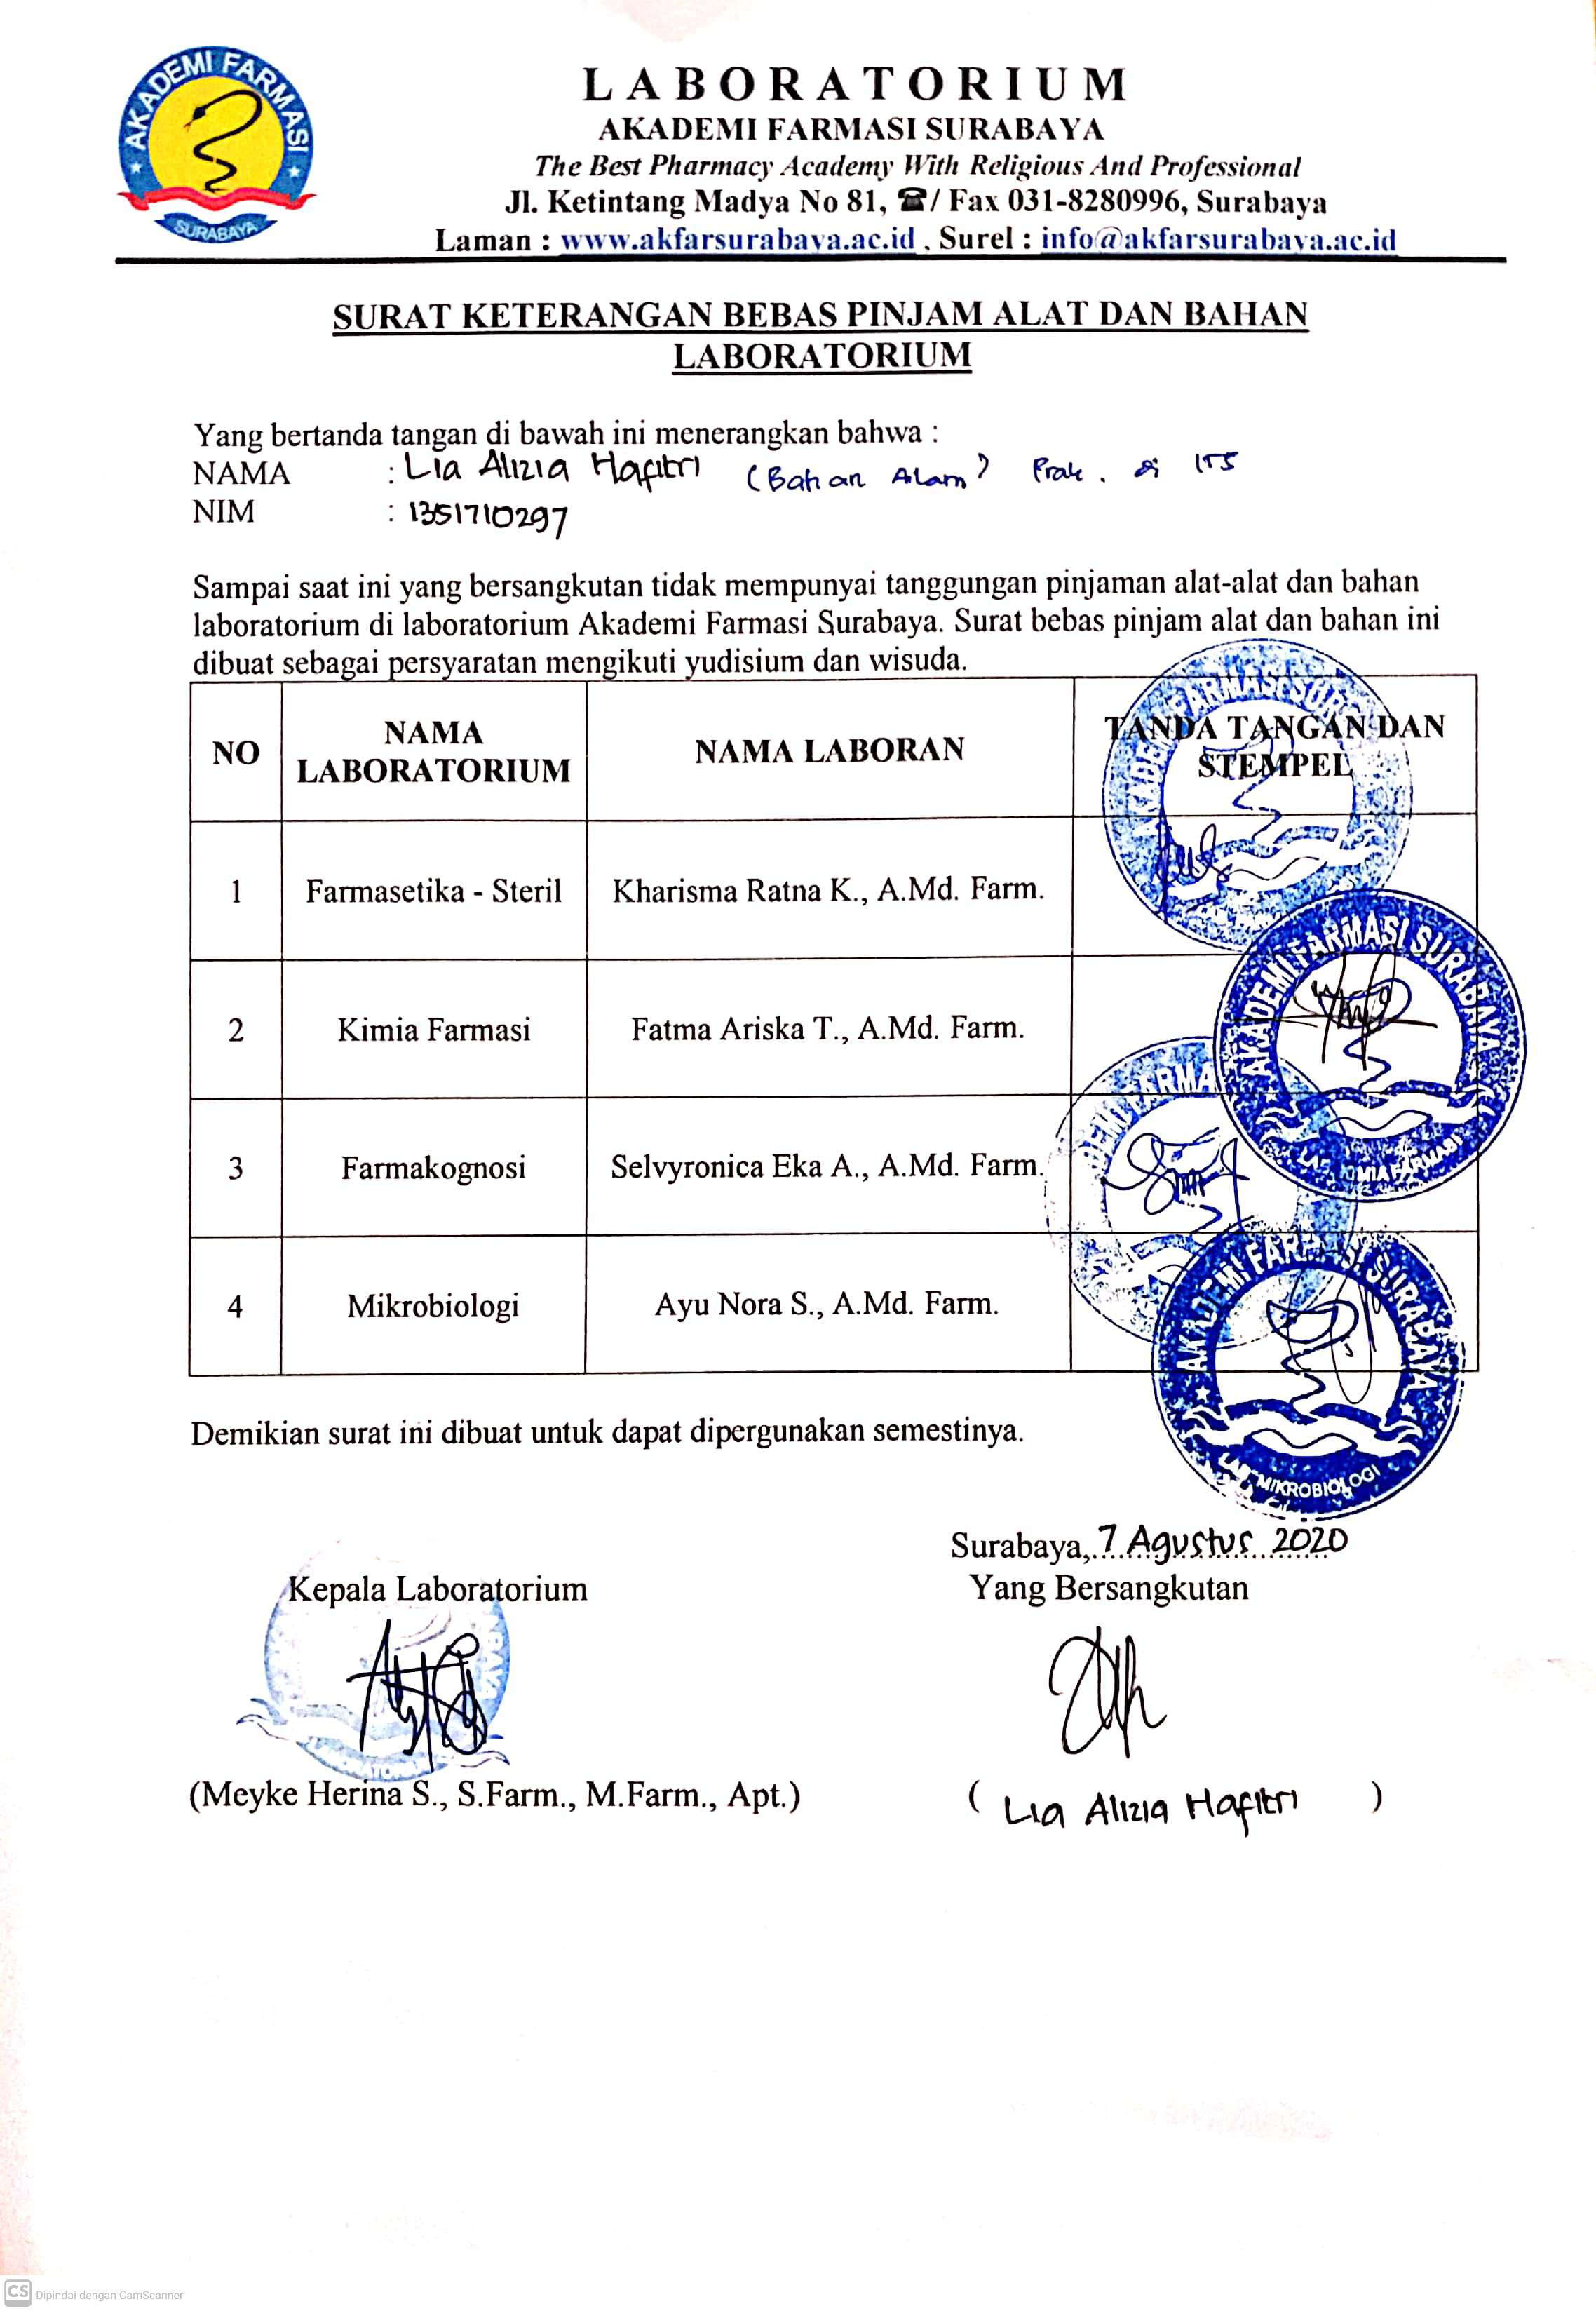 AKADEMI FARMASI
SURABAYA
LABORATORIUM
AKADEMI FARMASI SURABAYA
The Best Pharmacy Academy With Religious And Professional
Jl. Ketintang Madya No 81, ☎/ Fax 031-8280996, Surabaya
Laman : www.akfarsurabaya.ac.id , Surel : info@akfarsurabaya.ac.id
SURAT KETERANGAN BEBAS PINJAM ALAT DAN BAHAN
LABORATORIUM
Yang bertanda tangan di bawah ini menerangkan bahwa :
NAMA : Lia Alizia Hafitri (Bahan Alam) Prak. di ITS
NIM : 1351710297
Sampai saat ini yang bersangkutan tidak mempunyai tanggungan pinjaman alat-alat dan bahan
laboratorium di laboratorium Akademi Farmasi Surabaya. Surat bebas pinjam alat dan bahan ini
dibuat sebagai persyaratan mengikuti yudisium dan wisuda.
NO NAMA LABORATORIUM NAMA LABORAN TANDA TANGAN DAN STEMPEL
1 Farmasetika - Steril Kharisma Ratna K., A.Md. Farm.
AKADEMI FARMASI SUR
2 Kimia Farmasi Fatma Ariska T., A.Md. Farm.
AKADEMI FARMASI SURABAYA
3 Farmakognosi Selvyronica Eka A., A.Md. Farm.
4 Mikrobiologi Ayu Nora S., A.Md. Farm.
AKADEMI FARMASI SURABAYA
LAB MIKROBIOLOGI
Demikian surat ini dibuat untuk dapat dipergunakan semestinya.
Surabaya, 7 Agustus 2020
Kepala Laboratorium Yang Bersangkutan
(Meyke Herina S., S.Farm., M.Farm., Apt.) ( Lia Alizia Hafitri )
CS Dipindai dengan CamScanner